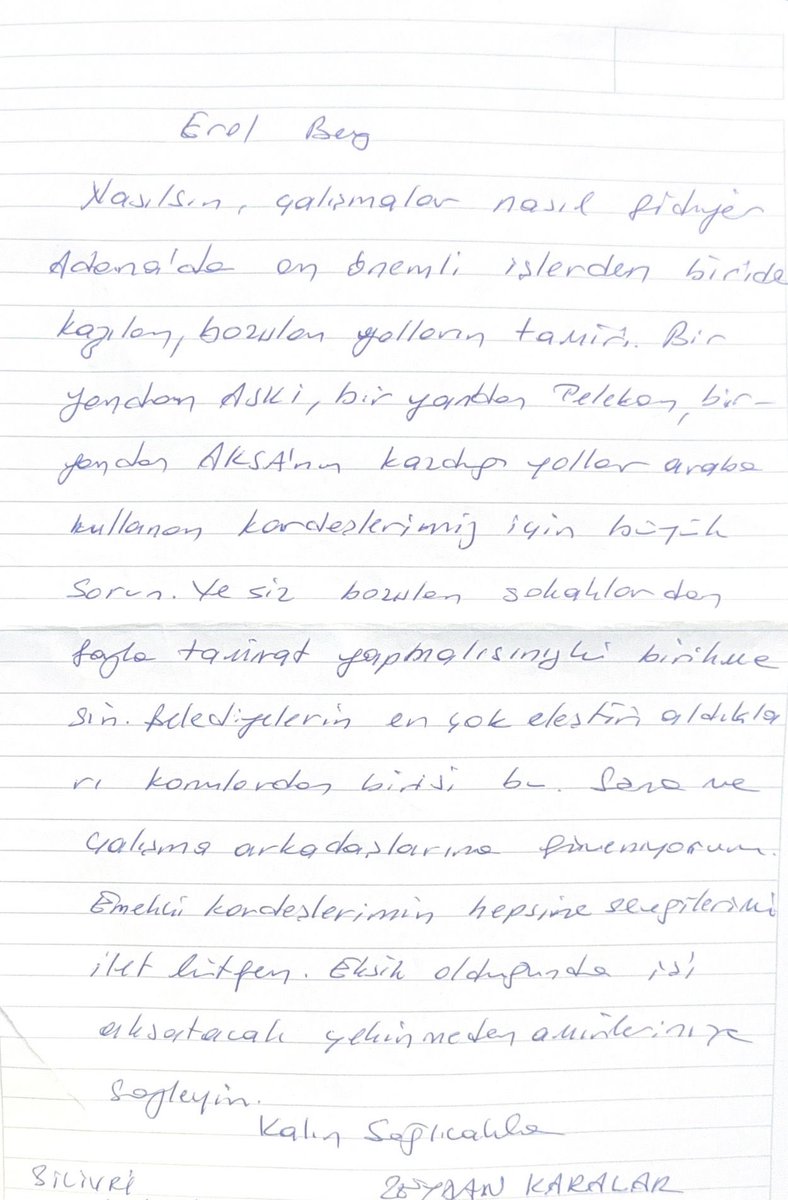 Erol Bey
Nasılsın, çalışmalar nasıl gidiyor
Adana'da en önemli işlerden biride
kazılan, bozulan yolların tamiri. Bir
yandan ASKİ, bir yandan Telekom, bir-
yandan AKSA'nın kazdığı yollar araba
kullanan kardeşlerimiz için büyük
sorun. Ve siz bozulan sokaklardan
fazla tamirat yapmalısınızki birikme
sin. Belediyelerin en çok eleştiri aldıkla
rı konulardan birisi bu. Sana ve
çalışma arkadaşlarına güveniyorum.
Emekçi kardeşlerimin hepsine sevgilerimi
ilet lütfen. Eksik olduğunda işi
aksatacak çekinmeden amirlerinize
söyleyin.
Kalın Sağlıcakla
SİLİVRİ ZEYDAN KARALAR